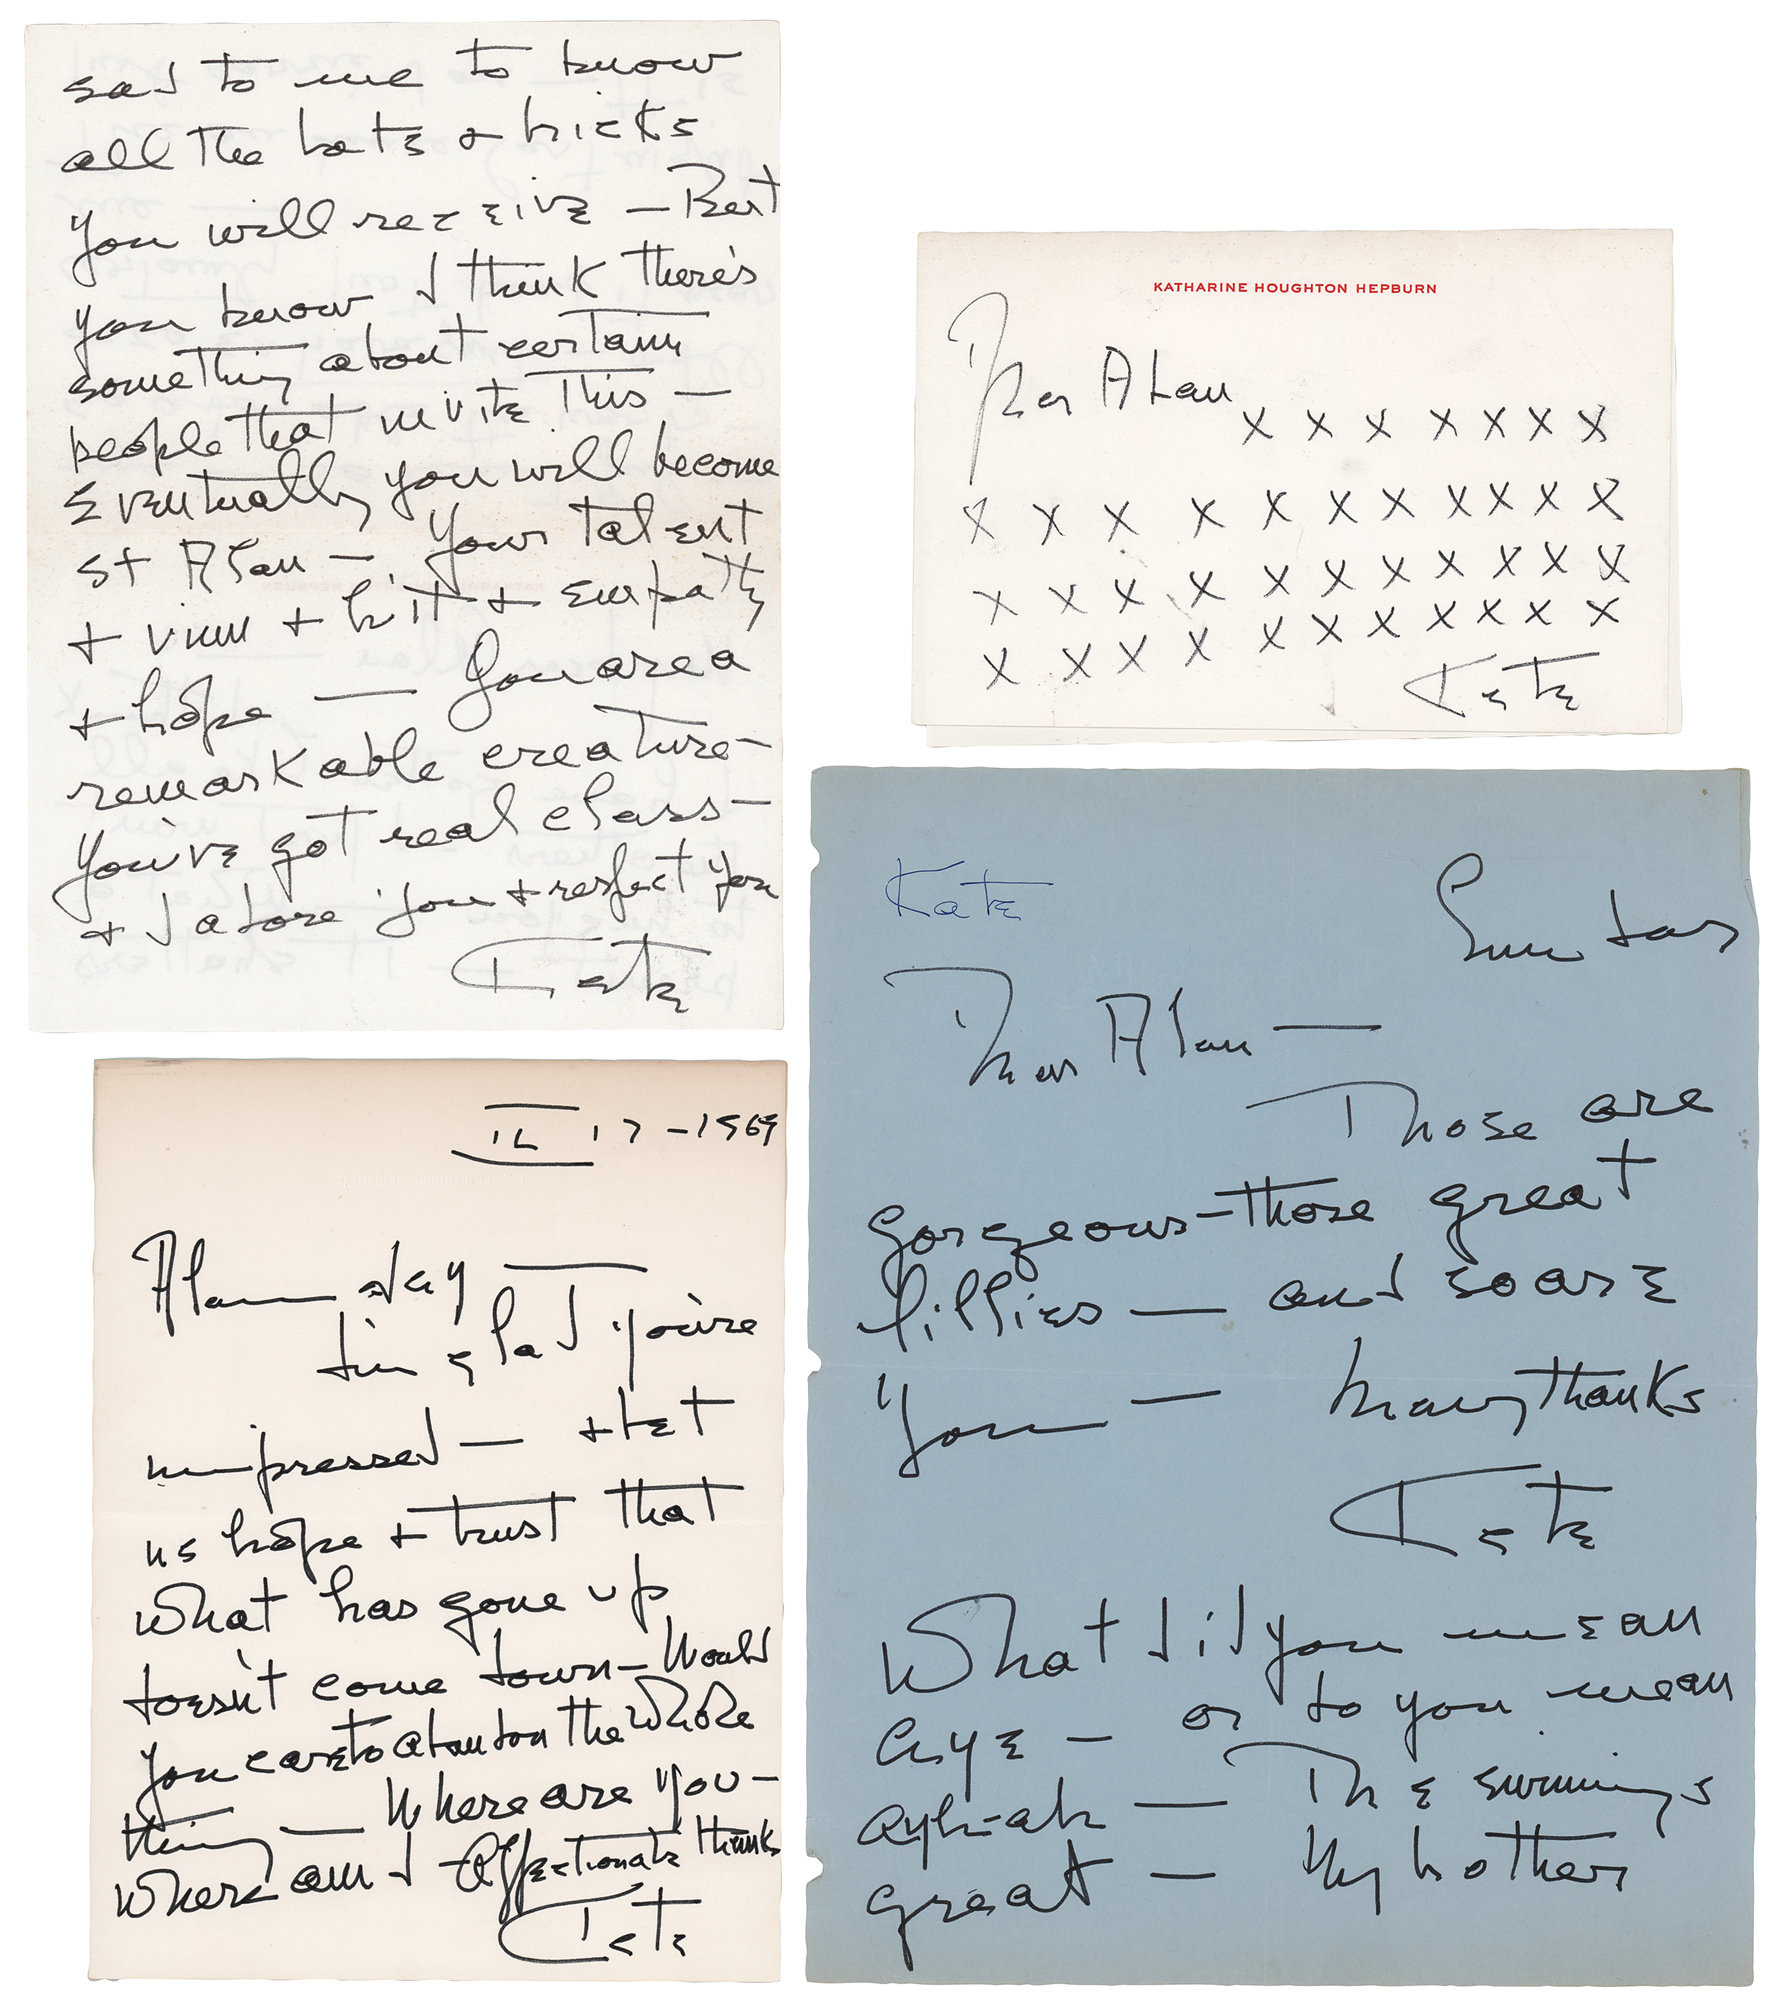 sad to me to know
all the bats + bricks
you will receive — But
you know I think there's
something about certain
people that invite this —
Eventually you will become
St Alan — Your talent
+ vim + wit + empathy
+ hope — You are a
remarkable creature —
You've got real class —
+ I adore you + respect you
Kate
KATHARINE HOUGHTON HEPBURN
Dear Alan
x x x x x x x
x x x x x x x x x x
x x x x x x x x x x
x x x x x x x x x x
Kate
II 17 - 1969
Alan Jay —
I'm glad you're
impressed — + let
us hope + trust that
what has gone up
doesn't come down — Would
you care to abandon the whole
thing — Where are you —
where am I — Affectionate thanks
Kate
Kate
Sunday
Dear Alan —
Those are
gorgeous — those great
lillies — and so are
you — Many thanks
Kate
What did you mean
— or do you mean
— The swimming's
great — My brother